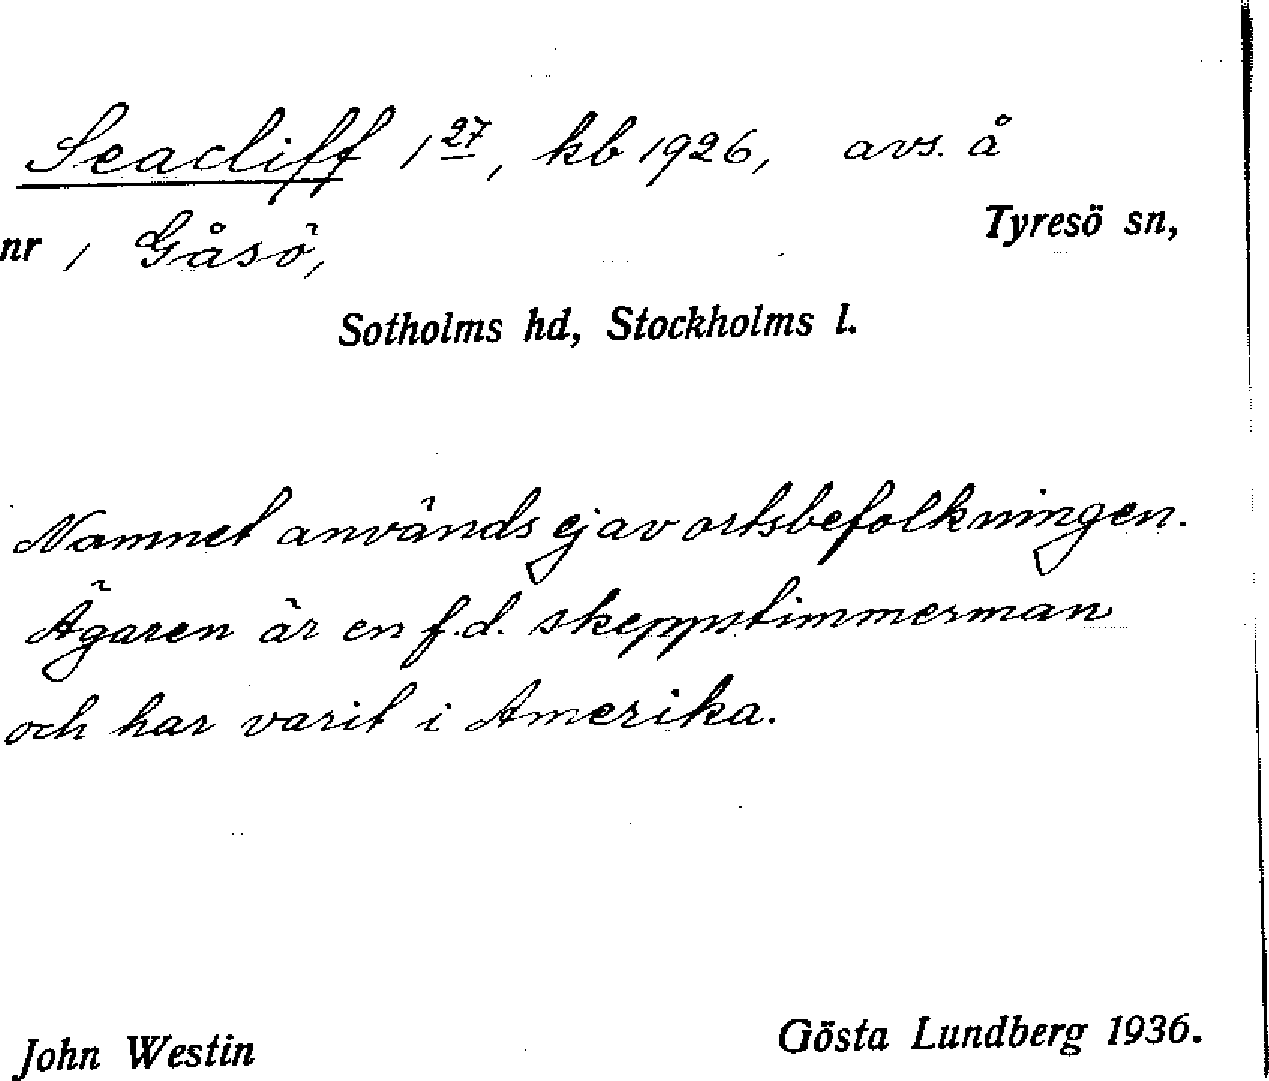 Seacliff 1 27, kb 1926, avs. å
nr 1 Gåsö, Tyresö sn,
Sotholms hd, Stockholms l.
Namnet används ej av ortsbefolkningen.
Ägaren är en f.d. skeppstimmerman
och har varit i Amerika.
John Westin Gösta Lundberg 1936.